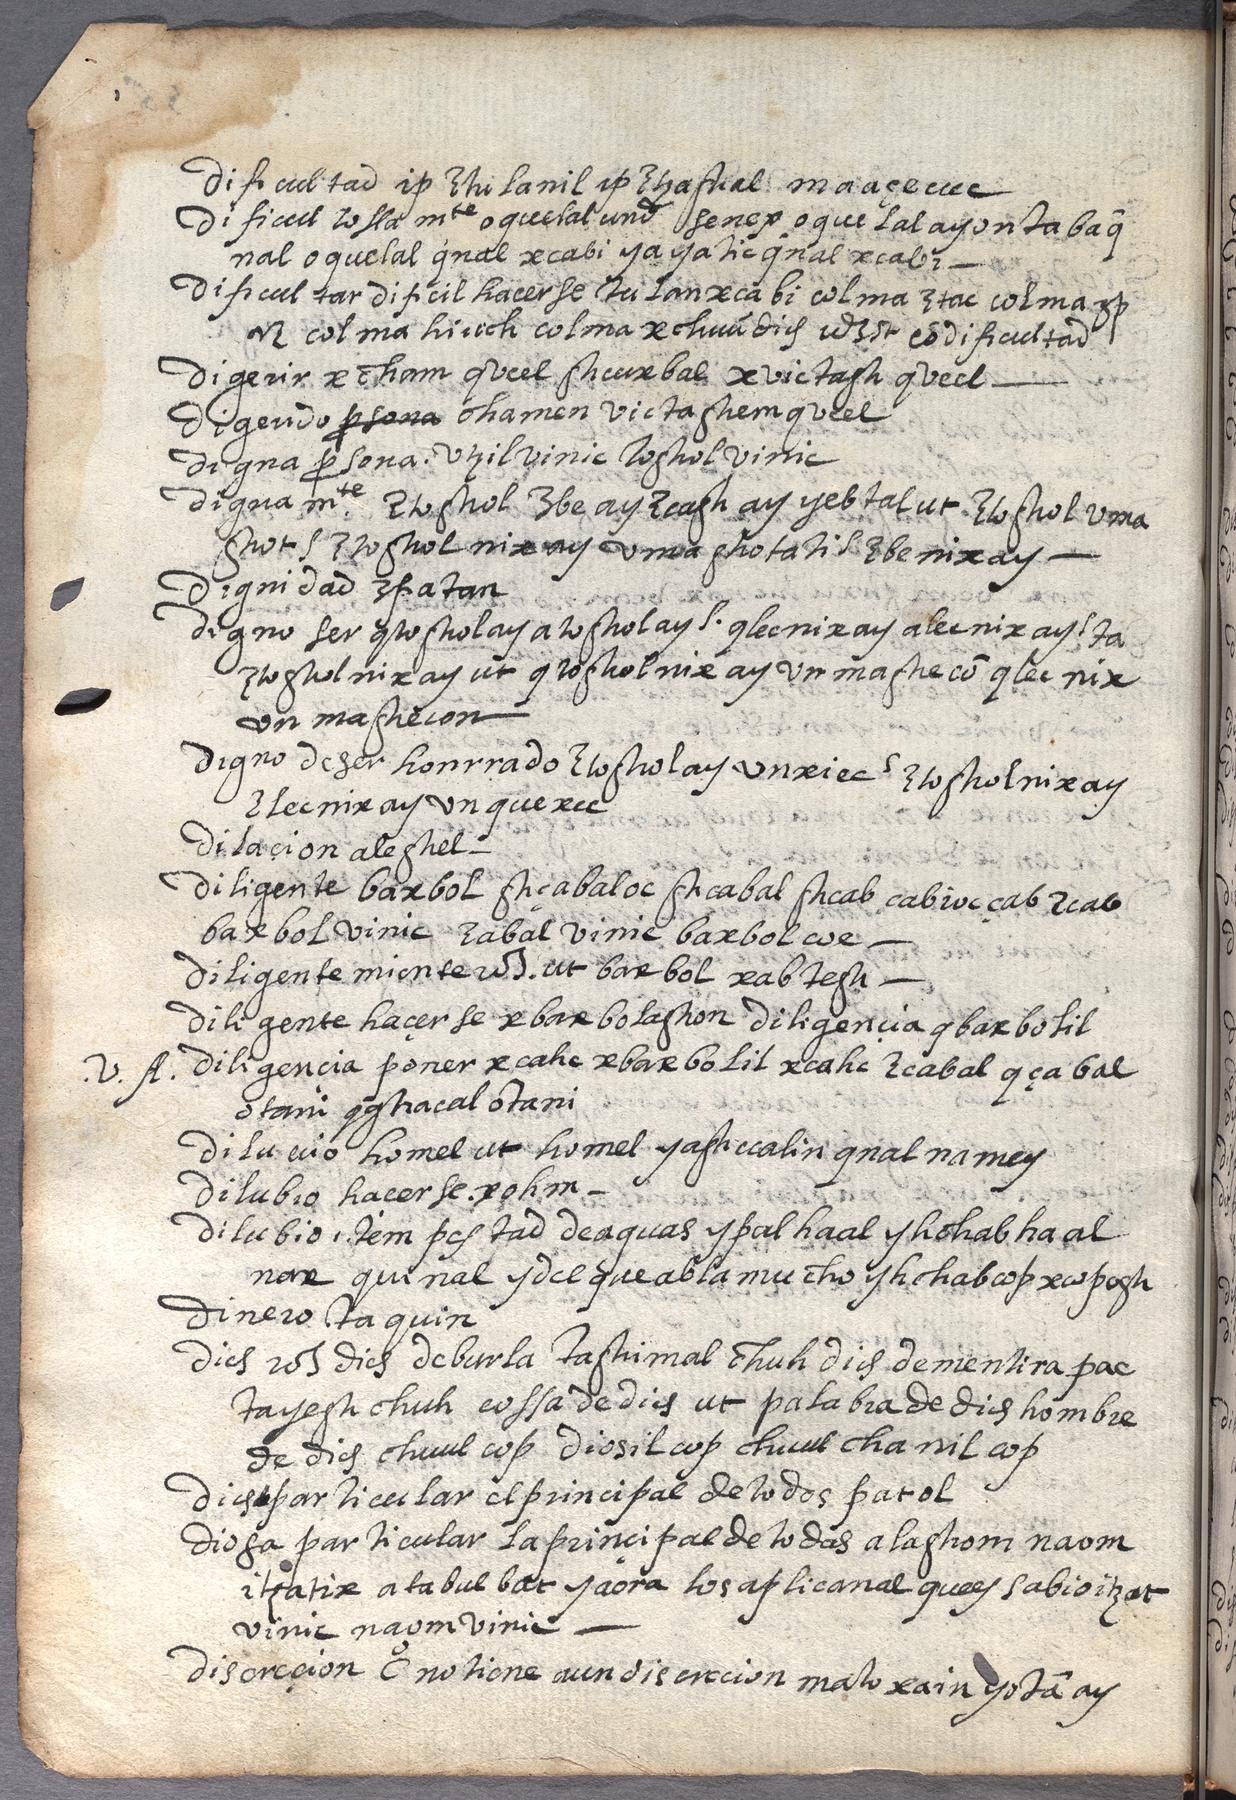 Dificultad ip ꜫtulanil ip ꜫtzaghal maaçecuc
Dificultossa mte oquelal und senex oquelalayontabaq̃
nal oquelal q̃nal xcabi yayatic q̃nal xcabi
Dificultar dificil hacerse tulanxcabi colma ꜫtac colma
colma hiuch colma xchuun dies con dificultad
Digerir x cham qveel ghcuxbal xvictagh qveel
Digerido psona chamen victaghem qveel
Digna psona. Vtzil vinic toghol vinic
Dignamte. ꜫtoghol ꜫbe ay ꜫcagh ay yebtal ut ꜫtoghol uma
ghot s ꜫtoghol nix ay uma ghotati s ꜫbe nix ay
Dignidad ꜫpatan
Digno ser qtogholay atogholay s. qlecnixay alecnixay s ta
ꜫtogholnixay ut qtogholnixay un maghecõ qlec nix
un maghecon
Digno deser honrrado ꜫtogholay unxiec s ꜫtogholnixay
ꜫlecnixay un quexcc
Dilaçion aleghel
Diligente baxbol ghçabaloc ghcabal ghcab cabioc çab ꜫcab
baxbol vinic ꜫabal vinic baxbol coe
Diligentemiente ut baxbol xabtegh
Diligente haçerse xbaxbolaghon diligençia qbaxbolil
.V. A. Diligençia poner xcahc xbaxbolil xcahc ꜫcabal qçabal
otani qghacal otani
Diluuio homel ut homel yaghcalin qnal namey
Dilubio hacerse. xohm
Dilubio item pestad deaquas ypalhaal yhchabhaal
nax quinal ydel queabla mucho yhchabcop xcopogh
Dinero taquin
Dies dies deburla taghimal chuh dies dementira pac
tayegh chuh cossa de dies ut palabra de dies hombre
de dies chuul cop diosil cop chuul chanil cop
Dies particular el principal de todos patol
Diosa particular la prinçipal de todas alaghom naom
itzatix atabulbat yaora los aplicanal quees sabio itzat
vinic naom vinic
Discreçion no tiene aun discrecion mato xain yotã ay